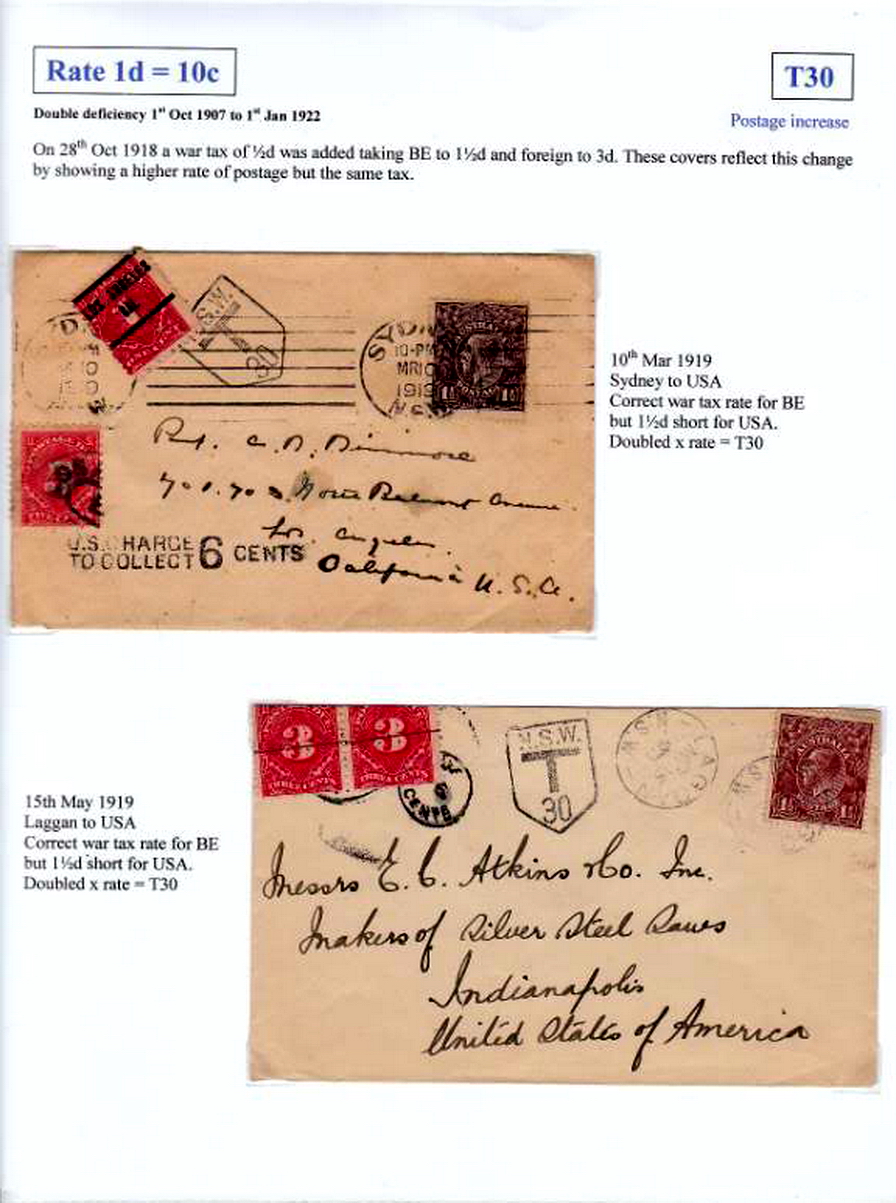 Rate 1d = 10c
T30
Double deficiency 1st Oct 1907 to 1st Jan 1922
Postage increase
On 28th Oct 1918 a war tax of ½d was added taking BE to 1½d and foreign to 3d. These covers reflect this change
by showing a higher rate of postage but the same tax.
N.S.W.
T
30
SYDN
10-PM
MR10
1919
N.S.W.
10th Mar 1919
Sydney to USA
Correct war tax rate for BE
but 1½d short for USA.
Doubled x rate = T30
U.S. CHARGE
TO COLLECT 6 CENTS
Los Angeles.
California U.S.A.
3 3
THREE CENTS THREE CENTS
CENTS
N.S.W.
T
30
LAGGAN N.S.W
AUSTRALIA
1½d
15th May 1919
Laggan to USA
Correct war tax rate for BE
but 1½d short for USA.
Doubled x rate = T30
Messrs E. C. Atkins & Co. Inc.
Makers of Silver Steel Saws
Indianapolis
United States of America